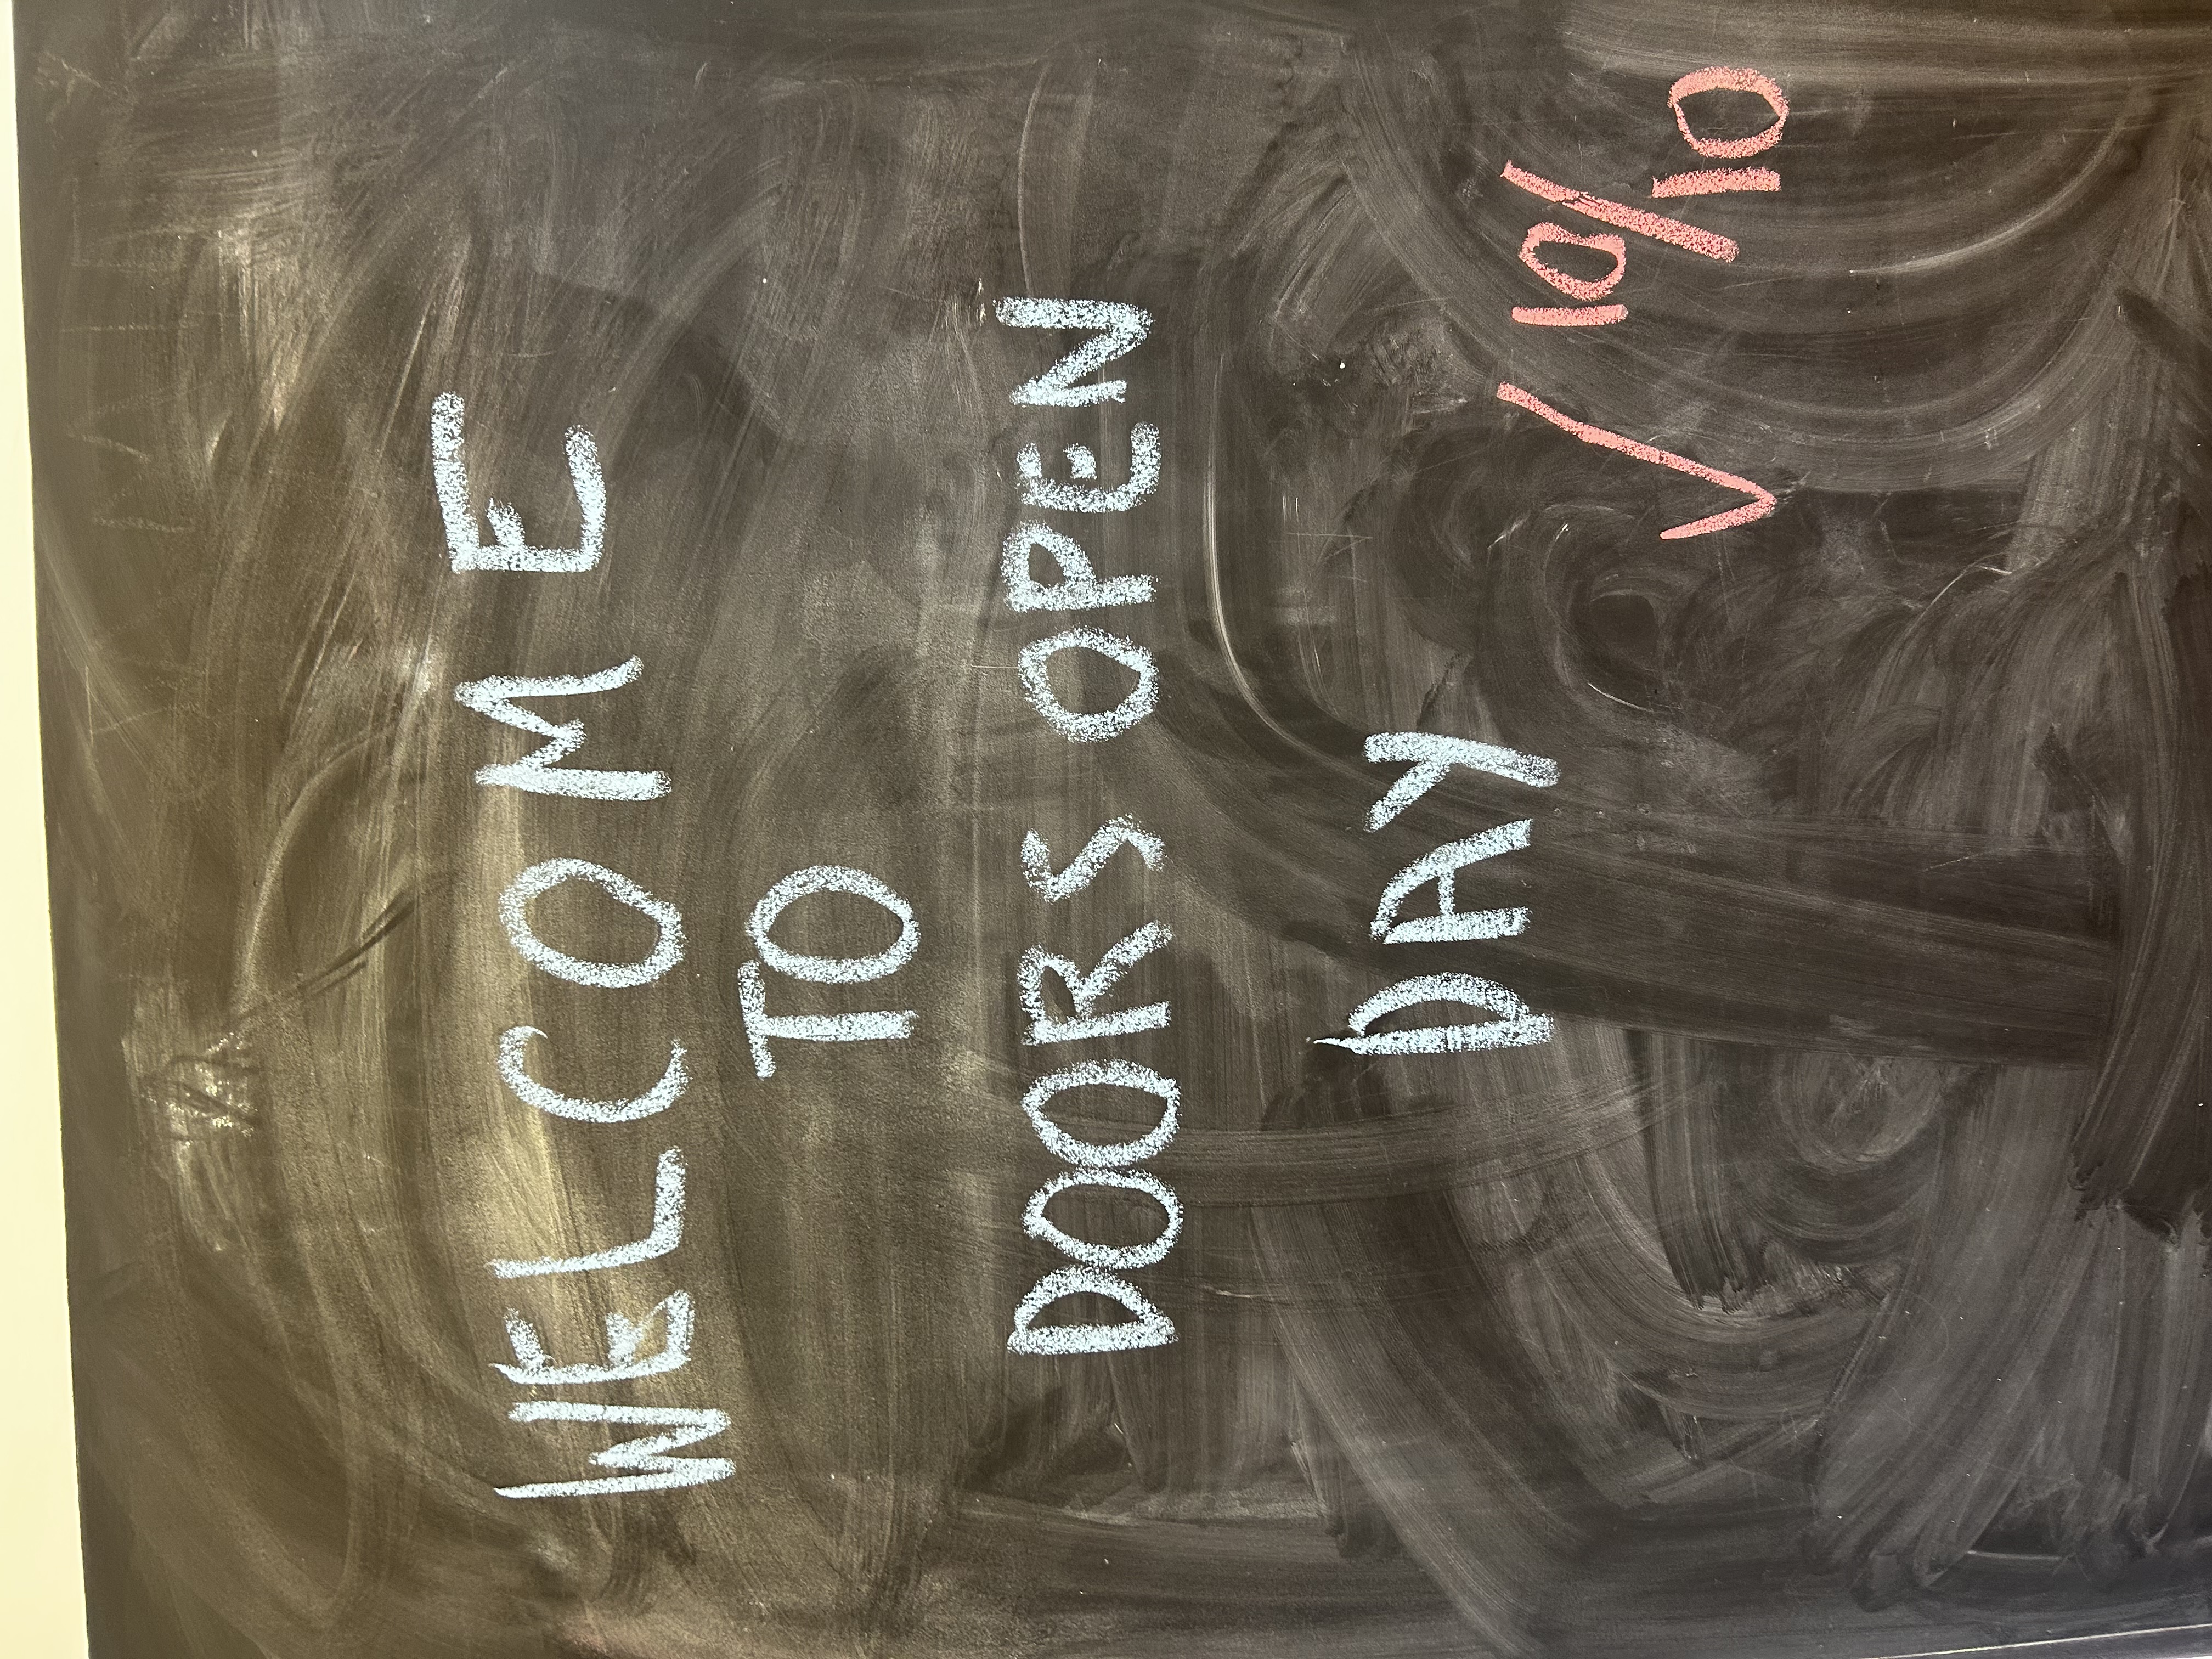 WELCOME
TO
DOORS OPEN
DAY
✓ 10/10